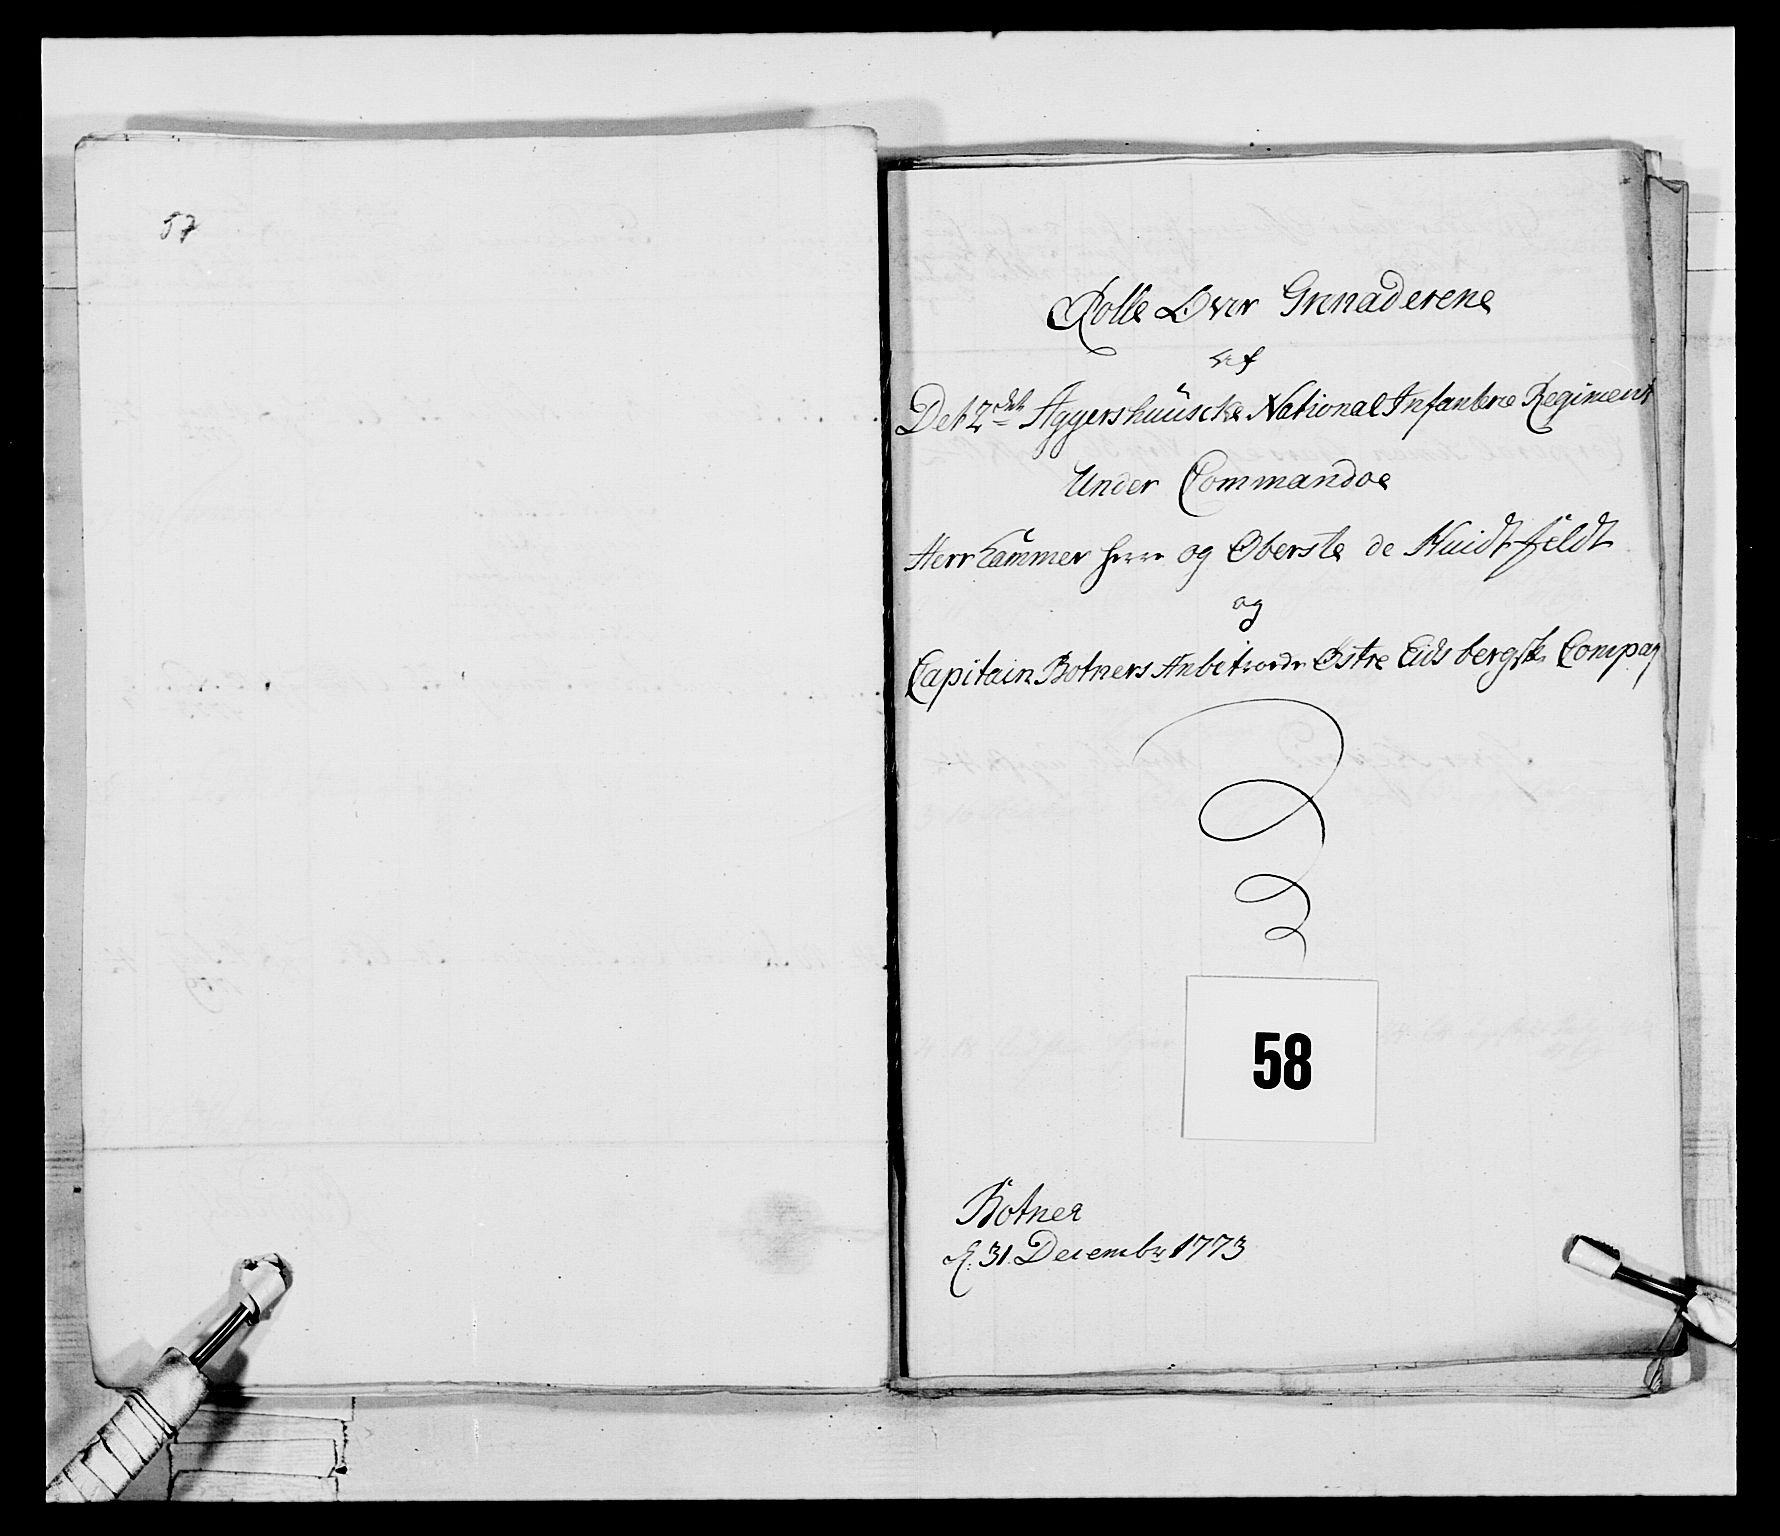 57
Rolle Over Grenaderene
af
Det 2det Aggershuuscke National Infanterie Regiment
Under Commandoe
Herr Cammer herr og Oberste de Huidtfeldt
og
Capitain Botners Anbetroede Østre Eidsbergske Compag
58
Botner
d. 31 Decembr 1773